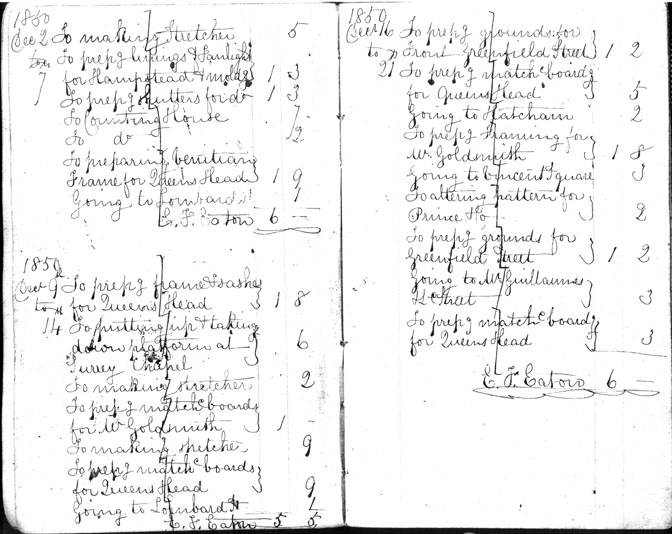 1850
Decr 2 To making Stretcher 5
to To prepg linings & Fanlight
7 for Hampstead & moldg 1 3
To prepg shutters for do 1 3
To Counting House 7
To do 2
To preparing venitian
Frame for Queens Head 1 9
Going to Lombard St 1
E. F. Eaton 6 —
1850
Decr 9th To prepg frame & sashes
to for Queens Head 1 8
14 To putting up & taking
down platform at 6
Surrey Chapel
To making stretcher 2
To prepg matchd boards
for Mr Goldsmith 1 -
To making stretcher 9
To prepg matchd boards
for Queens Head 9
Going to Lombard St 1
E. F. Eaton 5 5
1850
Decr 16 To prepg grounds for
to Front Greenfield Street 1 2
21 To prepg matchd boardg
for Queens Head 5
Going to Hatcham 2
To prepg Framing for
Mr Goldsmith 1 8
Going to Vincent Square 3
To altering pattern for
Prince Ho 2
To prepg grounds for
Greenfield Street 1 2
Going to Mr Guillaumes
Street 3
To prepg matchd boardg
for Queens Head 3
E. F. Eaton 6 —